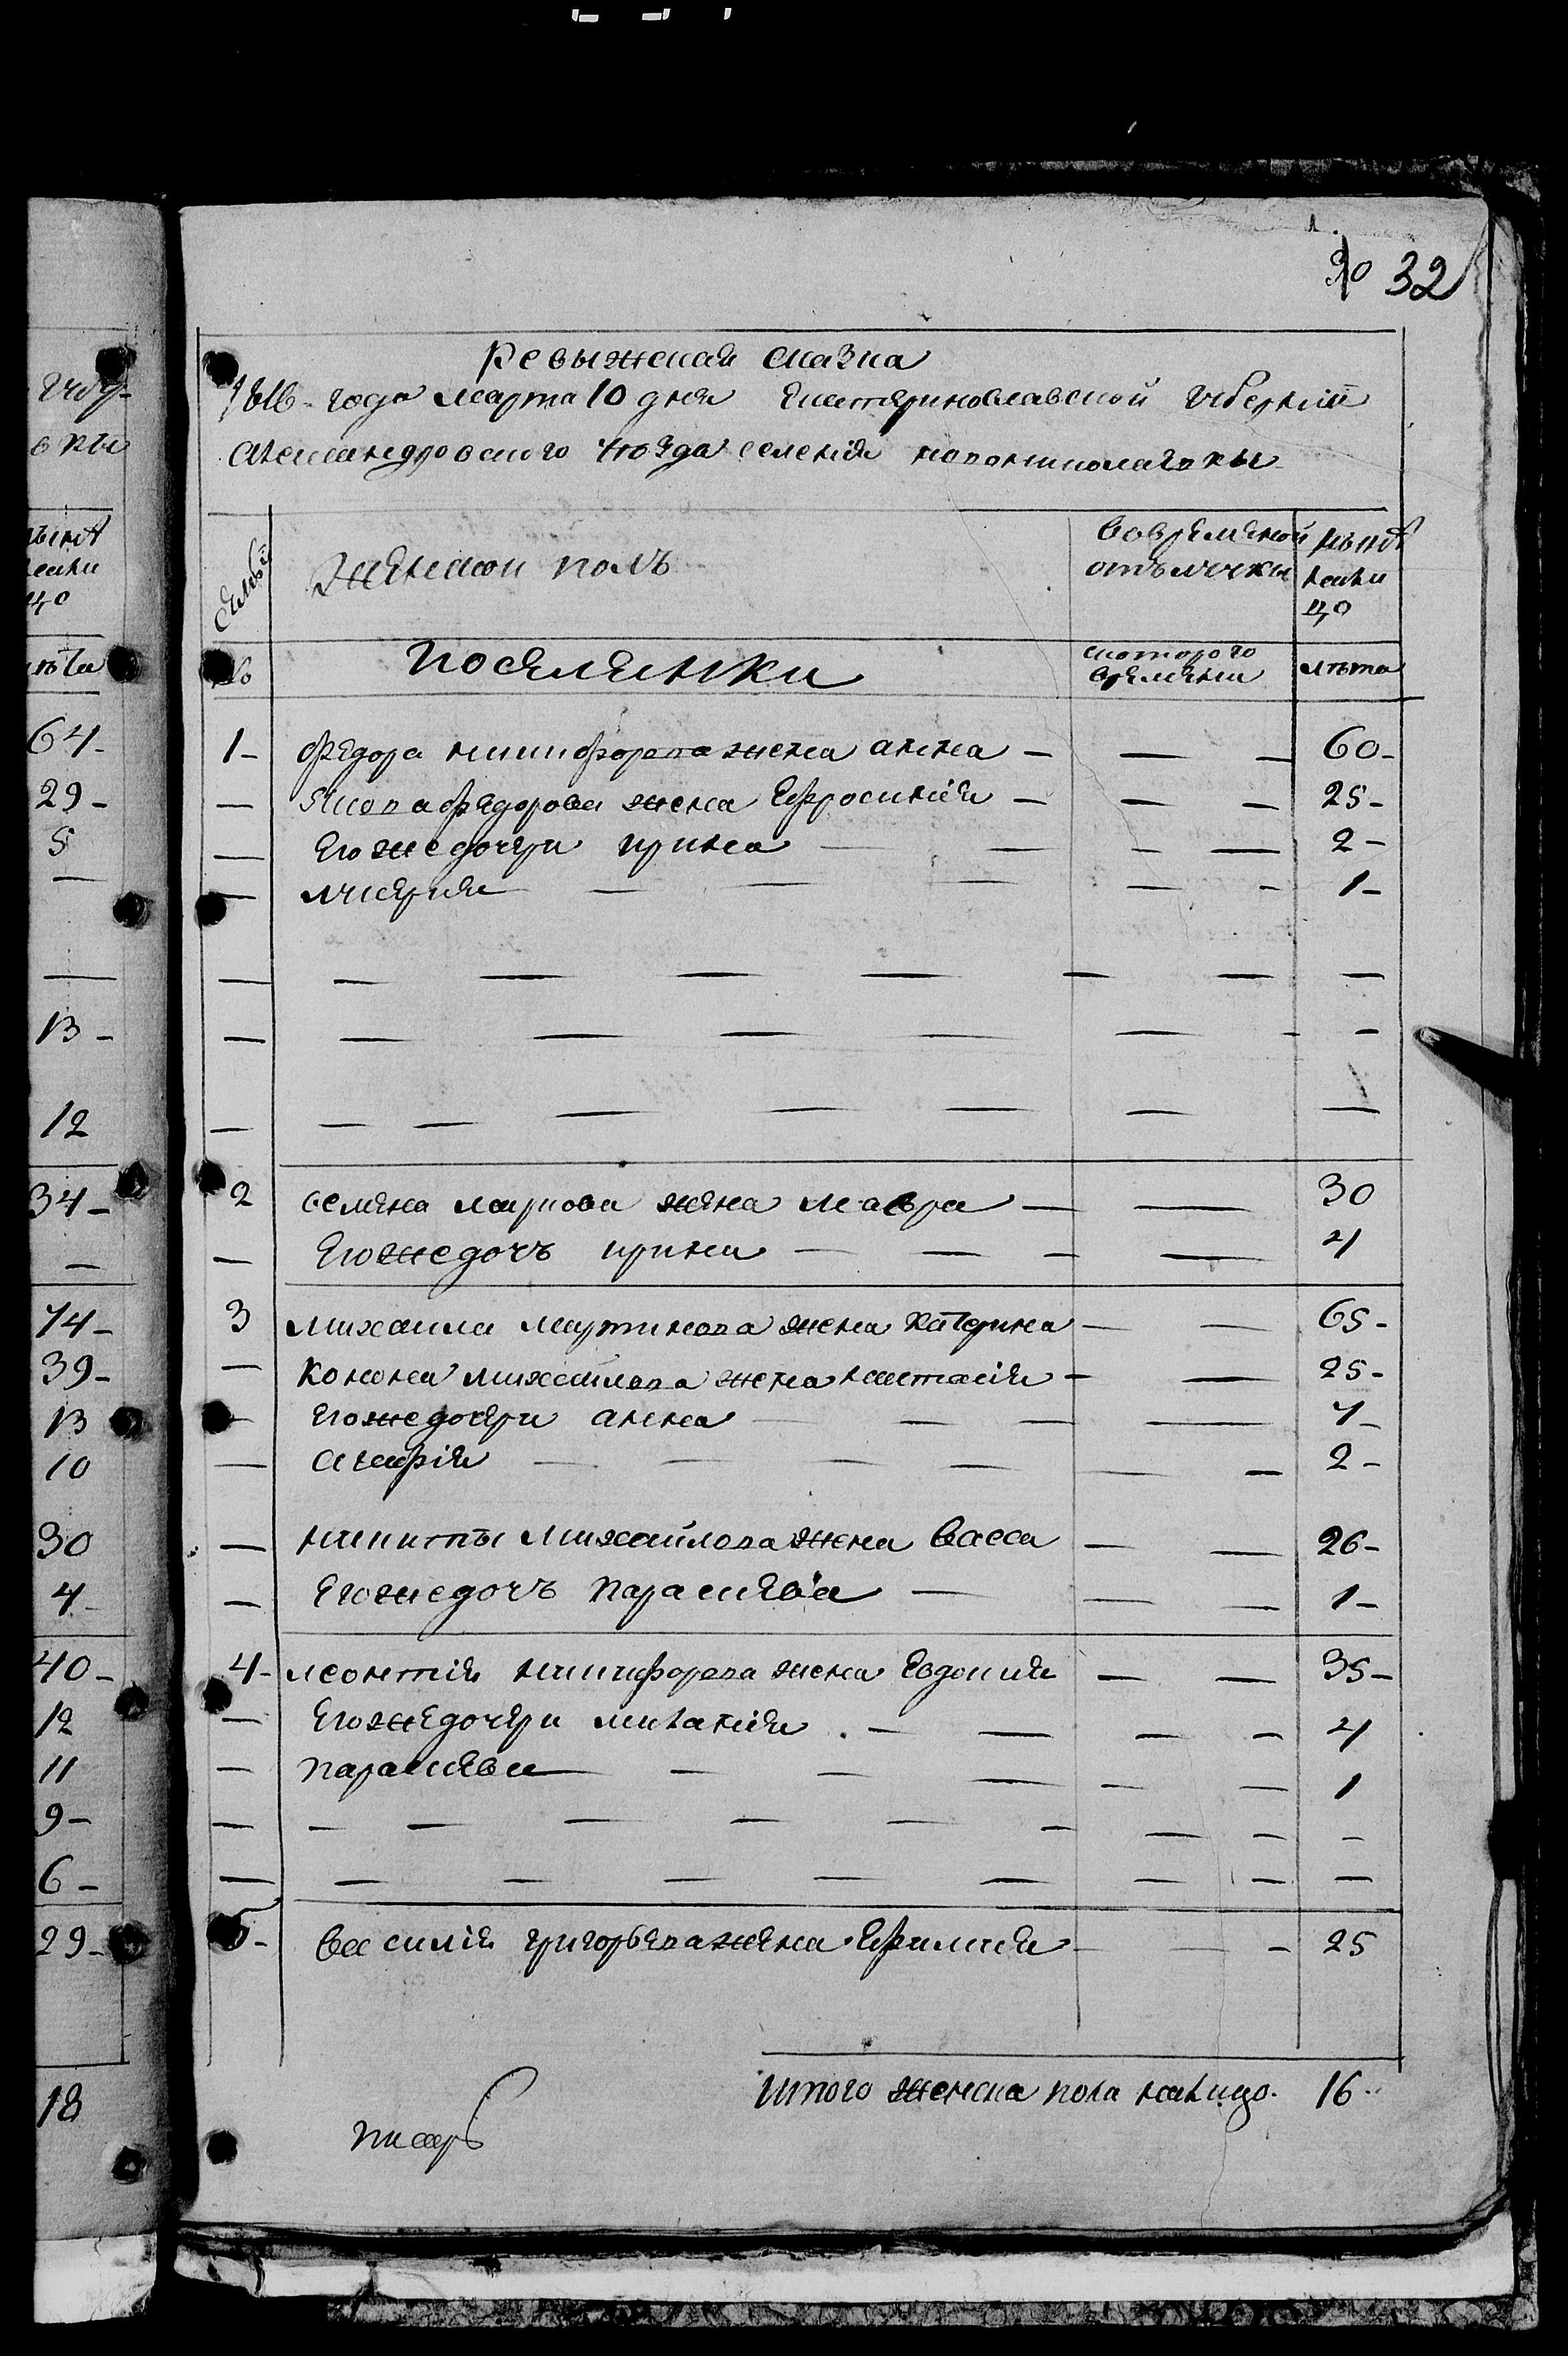 32
Ревыжская сказка
1816 года марта 10 дня Екатеринославской губернии
александровского уезда селения
Женской полъ
вовременой
отълучки
нынѣ
нали
цо
семьи
№
поселянки
скоторого
времени
лѣта
1- Федора никифорова жена анна — — — 60-
— якова федорова жена Ефросиния — — — 25-
— Егожедочери ирина — — — — 2-
— — — — — — 1-
2 семена маркова жена мавра — — 30
— Егожедочъ ирина — — — — 4
3 михаила мартинова жена катерина — — 65-
— конона михайлова жена настасия — — 25-
— егожедочери анна — — — 7-
— агафия — — — — — — 2-
— никиты михайлова жена васса — — 26-
— Егожедочъ параскева — — — 1-
4- леонтия никифорова жена Евдокия — — 35-
— Егожедочери мелания — — — — 4
— параскева — — — — — 1
5- василия григорьева жена Ефимия — — — 25
Итого женска пола налицо. 16
писарь
64-
29-
5
13-
12
34-
74-
39-
13
10
30
4
40-
12
11
9-
6-
29-
18